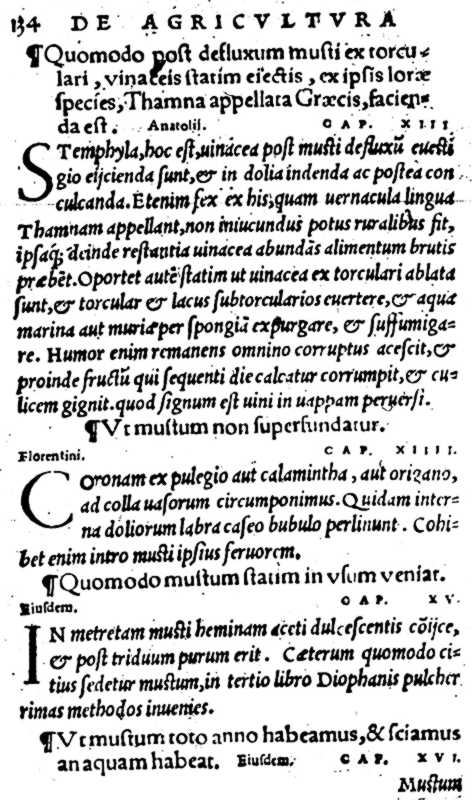 134 DE AGRICVLTVRA
¶Quomodo post defluxum musti ex torcu-
lari, vinaceis statim eiectis, ex ipsis loræ
species, Thamna appellata Græcis, facien-
da est. Anatolij. CAP. XIII.
STemphyla, hoc est, uinacea post musti defluxū euesti
gio eijcienda sunt, & in dolia indenda ac postea con
culcanda. Etenim fex ex his, quam uernacula lingua
Thamnam appellant, non iniucundus potus ruralibus fit,
ipsaq́; deinde restantia uinacea abundās alimentum brutis
præbēt. Oportet autē statim ut uinacea ex torculari ablata
sunt, & torcular & lacus subtorcularios euertere, & aqua
marina aut muria per spongiā expurgare, & suffumiga-
re. Humor enim remanens omnino corruptus acescit, &
proinde fructū qui sequenti die calcatur corrumpit, & cu-
licem gignit. quod signum est uini in uappam peruersi.
¶Vt mustum non superfundatur.
Florentini. CAP. XIIII.
Coronam ex pulegio aut calamintha, aut origano,
ad colla uasorum circumponimus. Quidam inter-
na doliorum labra caseo bubulo perlinunt. Cohi-
bet enim intro musti ipsius feruorem.
¶Quomodo mustum statim in vsum veniat.
Eiusdem. CAP. XV.
IN metretam musti heminam aceti dulcescentis cōijce,
& post triduum purum erit. Cæterum quomodo ci-
tius sedetur mustum, in tertio libro Diophanis pulcher
rimas methodos inuenies.
¶Vt mustum toto anno habeamus, & sciamus
an aquam habeat. Eiusdem. CAP. XVI.
Mustum